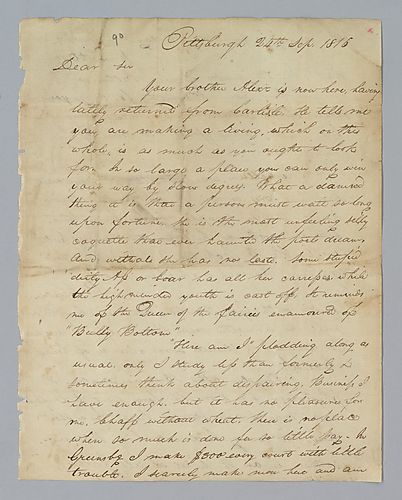 90
Pittsburgh 24th Sep. 1815
Dear Sir
Your brother Alexr is now here, having
lately returned from Carlisle. He tells me
you are making a living, which on the
whole, is as much as you ought to look
for. In so large a place you can only win
your way by slow degrees. What a damned
thing it is that a person must wait so long
upon fortune, she is the most unfeeling silly
coquette that ever haunted the poets dreams,
and withal she has no taste. Some stupid
dirty or boar has all her caresses while
the highminded youth is cast off. It reminds
me of the Queen of the fairies enamoured of
"Bully Bottom"
Here am I plodding along as
usual, only I study less than formerly. I
sometimes think about despairing. Business I
have enough, but it has no pleasures for
me. Chaff without wheat. there is no place
where so much is done for so little pay. In
Greensbg I make $300 every court with little
trouble. I scarcely make more here and am